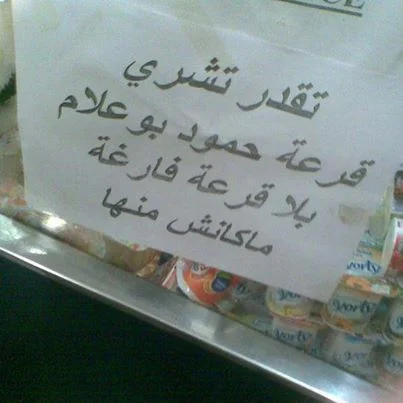 تقدر تشري
قرعة حمود بوعلام
بلا قرعة فارغة
ماكانش منها
yorty
yorty
yorty